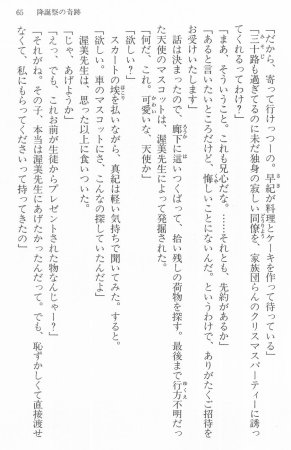 65 降誕祭の奇跡
「だから、寄って行けっつーの。早紀が料理とケーキ作って待っている」
「三十路も過ぎてるのに未だ独身の寂しい同僚を、家族団らんのクリスマスパーティーに誘っ
てくれるってわけ?」
「まあ、そういうこと。これも兄心だな。……それとも、先約があるか」
「あると言いたいところだけど、悔しいことにないんだ。というわけで、ありがたくご招待を
お受けいたします」
　話は決まったので、廊下に這いつくばって、拾い残しの荷物を探す。最後まで行方不明だっ
た天使のマスコットは、渥美先生によって発掘された。
「何だ、これ。可愛いな、天使か」
「欲しい?」
　スカートの埃を払いながら、真紀は軽い気持ちで聞いてみた。すると。
「欲しい。車のマスコットにさ、こんなの探していたんだよ」
渥美先生は、思った以上に食いついた。
「じゃ、あげようか」
「えっ、でも、これお前が生徒からプレゼントされた物なんじゃー?」
「それがね。その子、本当は渥美先生にあげたかったんだって。でも、恥ずかしくて直接渡せ
なくて、私にもらってくださいって持ってきたの」